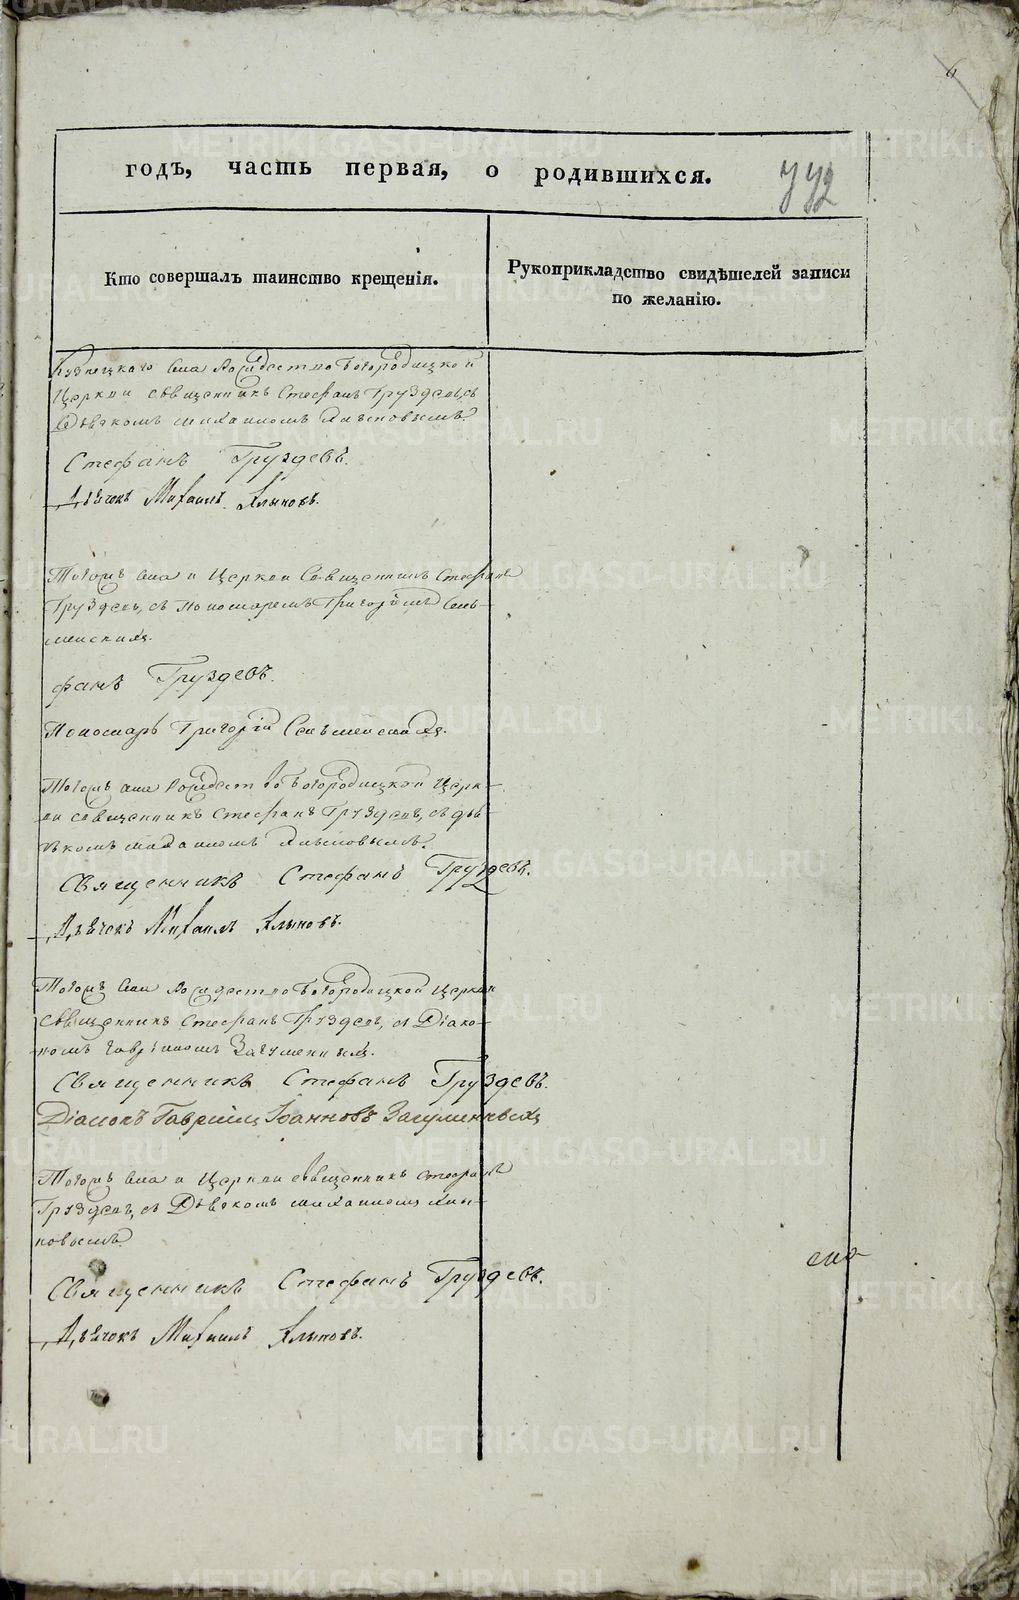 6
годъ, часть первая, о родившихся.
Кто совершалъ таинство крещенія.
Рукоприкладство свидѣтелей записи
по желанію.
Кузнецкаго села Рождество Богородицкой
Церкви священникъ Стефанъ Груздевъ, съ
Дьячкомъ Михаиломъ Хлыновымъ.
Стефанъ Груздевъ.
Дьячекъ Михаилъ Хлыновъ.
Тогожъ села и Церкви Священникъ Стефанъ
Груздевъ, съ Пономаремъ Григоріемъ
Груздевъ.
Пономарь Григорій
Тогожъ села Рождество Богородицкой Церк-
ви священникъ Стефанъ Груздевъ, съ дья-
чкомъ Михаиломъ Хлыновымъ.
Священникъ Стефанъ Груздевъ.
Дьячекъ Михаилъ Хлыновъ.
Тогожъ села Рождество Богородицкой Церкви
священникъ Стефанъ Груздевъ, съ Діако-
номъ Гавріиломъ
Священникъ Стефанъ Груздевъ.
Діаконъ Гавріилъ Іоанновъ
Тогожъ села и Церкви священникъ Стефанъ
Груздевъ, съ Дьячкомъ Михаиломъ Хлы-
новымъ.
Священникъ Стефанъ Груздевъ.
Дьячокъ Михаилъ Хлыновъ.
METRIKI.GASO-URAL.RU